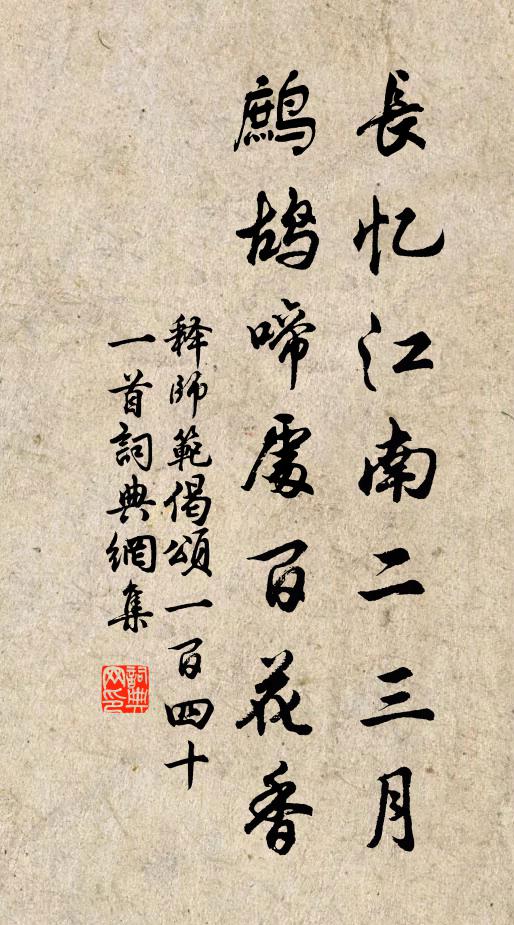 長忆江南二三月
鷓鴣啼處百花香
释師範偈頌一百四十
一首詞典網集
詞典
网印